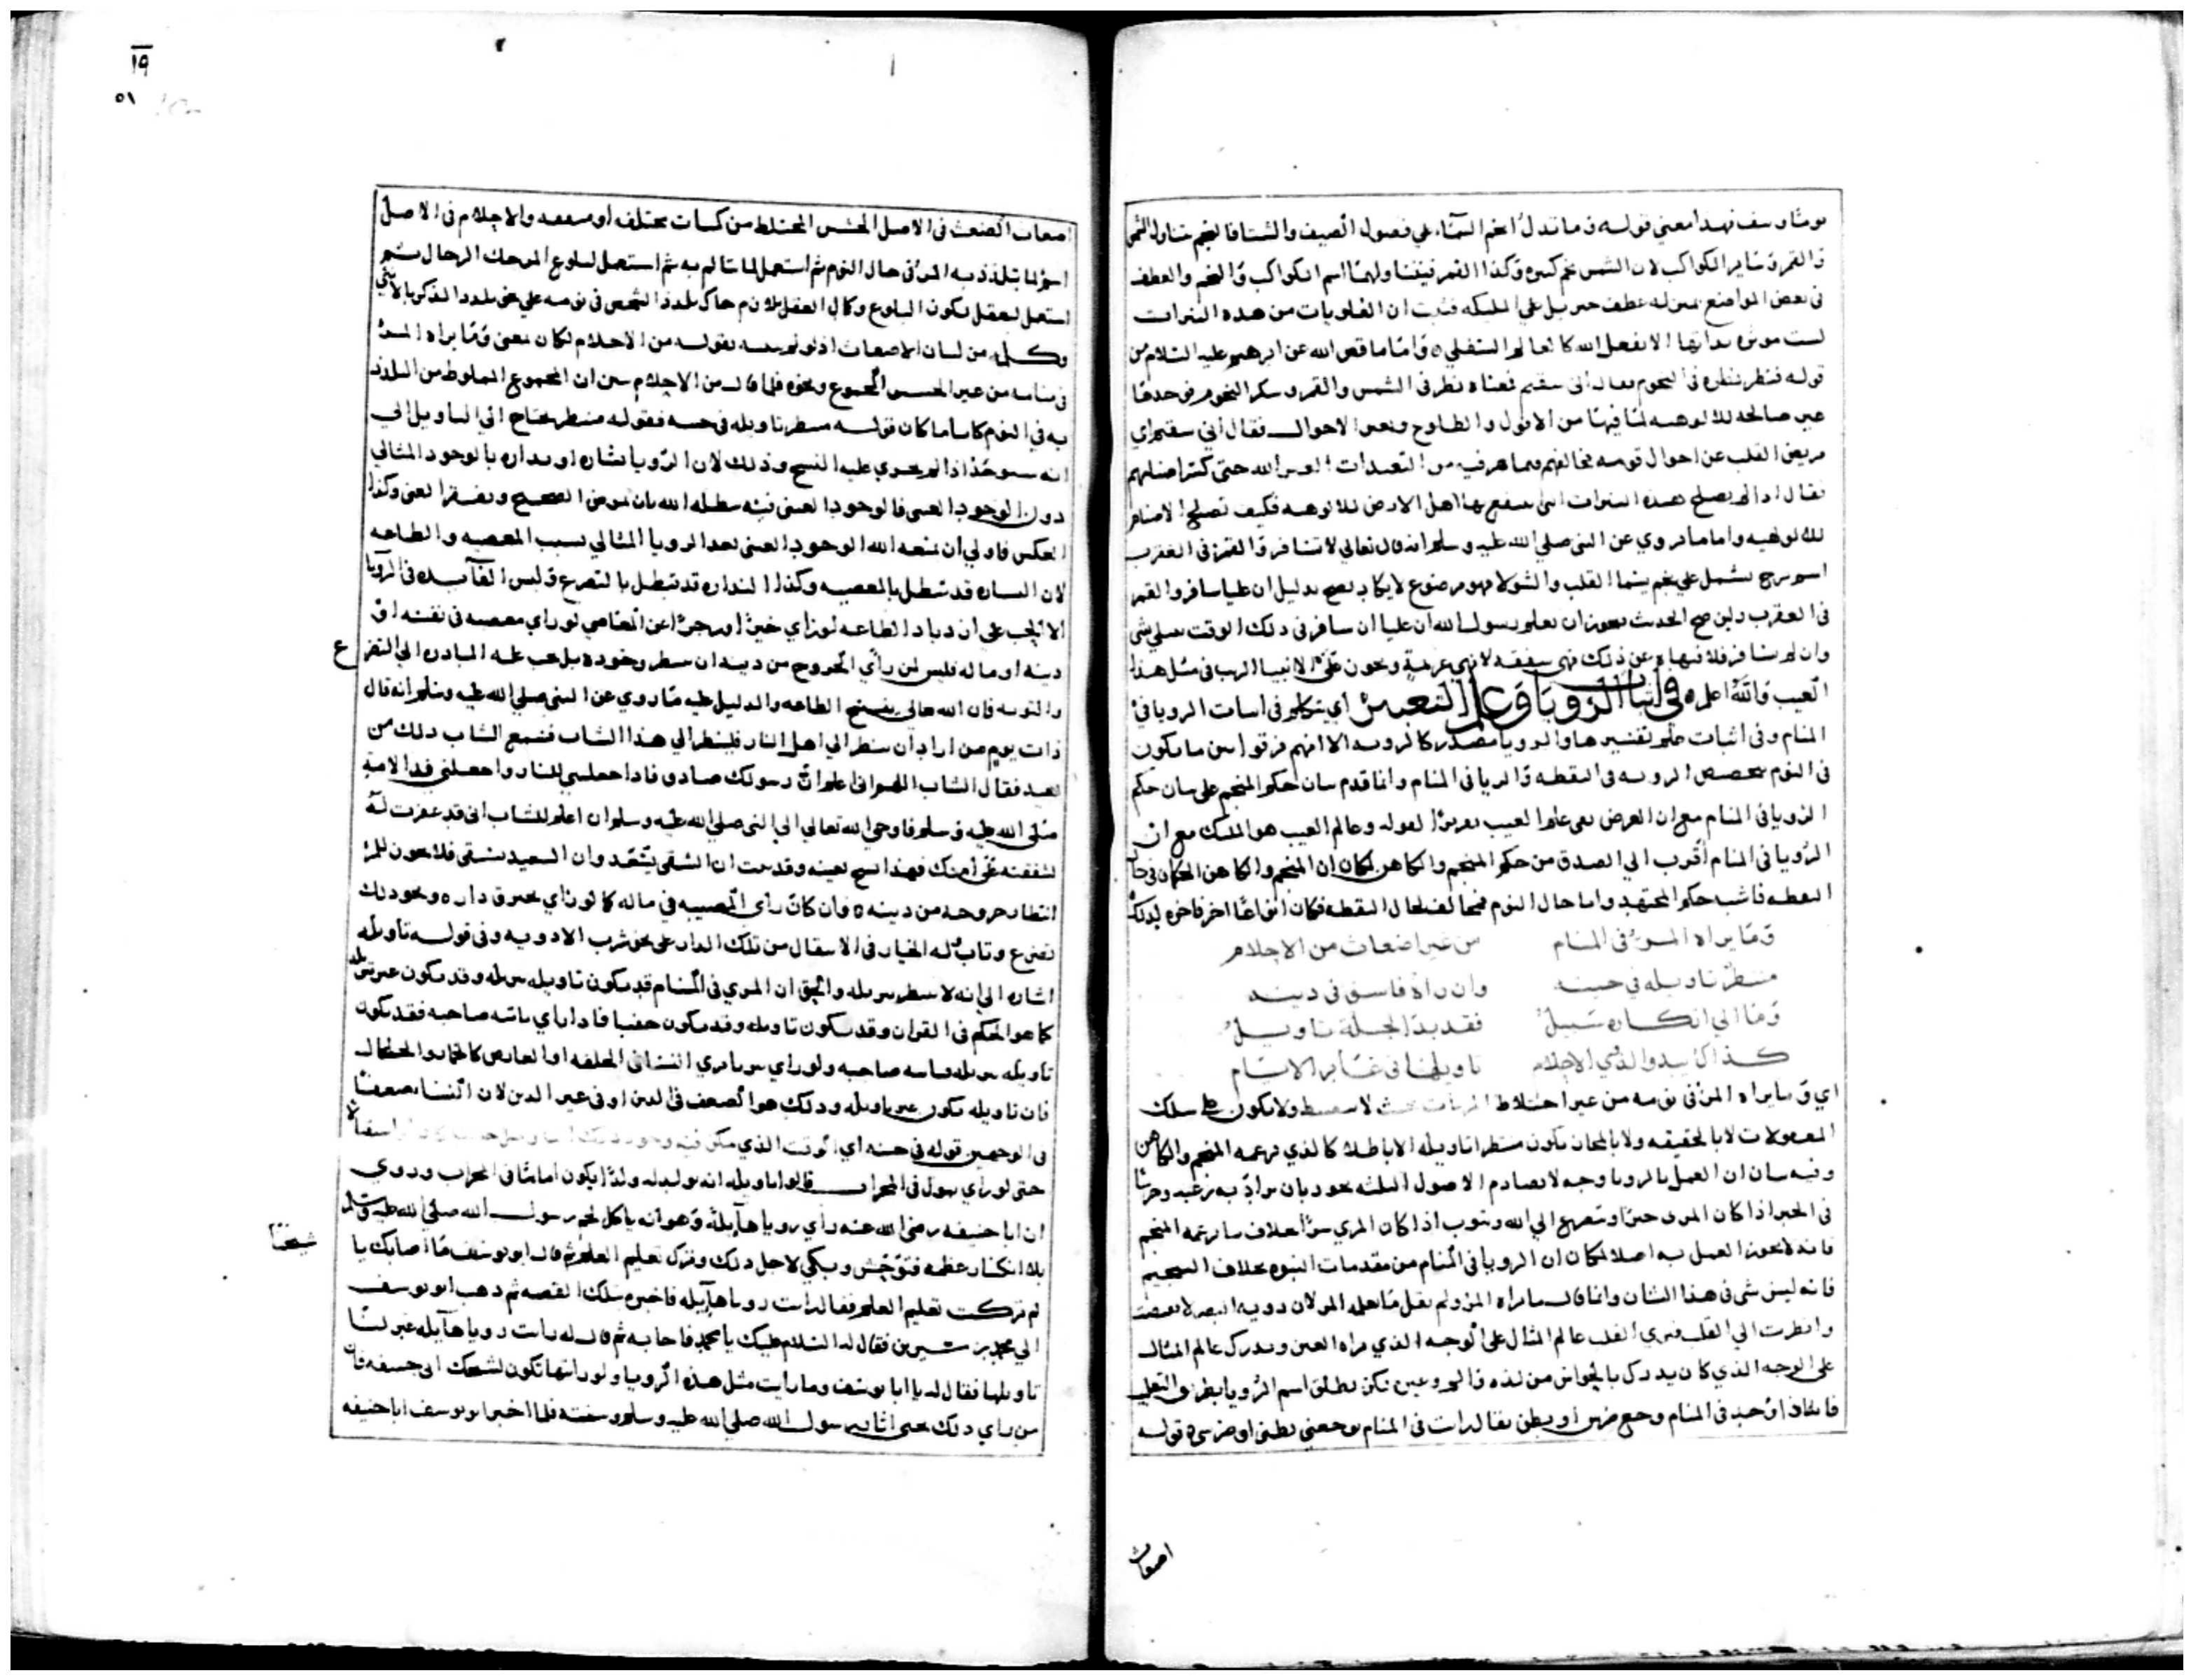 يوشاوسف فهدا معني قوله وما تدل انجم السماء علي فصول الصيف والشتا فالنجم يتناول الشمس
والقمر وساير الكواكب لان الشمس نجم كبيره وكذا القمر فيتناولهما اسم الكواكب والنجم والعطف
في بعض المواضع بمنزله عطف جبريل علي المليكه فثبت ان العلويات من هذه النيرات
ليست موثره بداتها الا بفعل الله كالعالم السفلي ه واما ما قص الله عن ابرهيم عليه السلام من
قوله فنظر نظره في النجوم فقال اني سقيم فمعناه نظر في الشمس والقمر وسير النجوم فوجدها
غير صالحه للالوهيه لما فيها من الافول والطلوع وتغير الاحوال فقال اني سقيم اي
مريض القلب عن احوال قومه مخالفهم فيما هم فيه من التعبدات لغير الله حتي كسر اصنامهم
فقال اذا لم يصلح هذه النيرات التي ينتفع بها اهل الارض للالوهيه فكيف تصلح الاصنام
للالوهيه واما ما روي عن النبي صلي الله عليه وسلم انه قال تعالي لا تسافر والقمر في العقرب
اسم برج يشمل علي نجم ينتما القلب والشولا فهو موضوع لا يكاد يصح بدليل ان عليا سافر والقمر
في العقرب ولين صح الحديث يجوز ان يعلم رسول الله ان عليا ان سافر في ذلك الوقت يبتلي بشي
وان لم يسافر فلا فنهاه عن ذلك نهي شفقه لا نهي عزيمة ويجوز علي الانبيا النهي في مثل هذا
الغيب والله اعلم ه في اثبات الرويا وعلم التعبير اي يتكلم في اثبات الرويا في
المنام وفي اثبات علم تفسيرها والرويا مصدر كالرويه الا انهم فرقوا بين ما يكون
في النوم بتخصيص الرويه في اليقظه والرويا في المنام وانما قدم بيان حكم المنجم علي بيان حكم
الرويا في المنام مع ان الغرض نفي علم الغيب تقريرا لقوله وعالم الغيب هو المليك مع ان
الرويا في المنام اقرب الي الصدق من حكم المنجم والكاهن لمكان ان المنجم والكاهن الحكمان في حال
اليقظه فاشبه حكم المجتهد واما حال النوم فمخالف لحال اليقظه فكان انواعا اخر فاخره لذلك
وما يراه المرء في المنام من غير اضغاث من الاحلام
منتظر تاويله في حينه وان راه فاسق في دينه
وما الي انكاره سبيل فقد بدا لجلة تاويل
كذاك يبدو الذي الاحلام تاويلها في غابر الايام
اي وما يراه المرء في نومه من غير اختلاط المرئيات بحيث لا ينضبط ولا يكون علي سلك
المعمولات لا بالحقيقه ولا بالمجاز يكون منتظرا تاويله لا باطلا كالذي يزعمه المنجم والكاهن
وفيه بيان ان العمل بالرويا وجه لا يصادم الاصول الثلثه يجوز بان يزداد به رغبه وحرصا
في الخير اذا كان المري خيرا ويتضرع الي الله ويتوب اذا كان المري شرا بخلاف ما يزعمه المنجم
فانه لا يجوز العمل به اصلا لمكان ان الرويا في المنام من مقدمات النبوه بخلاف التنجيم
فانه ليس شي في هذا الشان وانما قال ما يراه المرء ولم يقل ما يعلمه المرء لان رويه البصر لا تقتصر
وانظرت الي القلب فيري القلب عالم المثال علي الوجه الذي يراه العين ويدرك عالم المثال
علي الوجه الذي كان يدرك بالحواس من لذه والم وغيره لكن يطلق اسم الرويا بطريق التغليب
فانه اذا وجد في المنام وجع ضرس او بطن يقال رايت في المنام يوجعني بطني او ضرسي ه قوله
اضغاث
١٩
٥١
اضغاث الضغث في الاصل الحشيش المختلط من كسات مختلفه او متفقه والاحلام في الاصل
اسم لما يتلذذ به المرء في حال النوم ثم استعمل لما يتالم به ثم استعمل لبلوغ المرء حد الرجال ثم
استعمل للعقل لكون البلوغ وكمال العقل يلازم حال تلذذ الشخص في نومه علي نحو تلذذ الذكر بالانثي
وكلمه من لبيان الاضغاث اذ لو لم يبينه بقوله من الاحلام لكان معني وما يراه المرء
في منامه من غير الحشيش المجموع ونحوه فلما قال من الاحلام بين ان المجموع المخلوط من التلذذ
به في النوم كائنا ما كان قوله منتظر تاويله في حينه فقوله منتظر يحتاج الي التاويل الي
انه سيوجد اذا لم يجري عليه النسخ وذلك لان الرويا بشاره او نذاره بالوجود المثالي
دون الوجود العيني فالوجود العيني فيه يبطله الله بان يمرض الصحيح ويفتقر الغني وكذا
العكس فاولي ان يمنعه الله الوجود العيني بعد الرويا المثالي بسبب المعصيه والطاعه
لان البشاره قد تبطل بالمعصيه وكذا النذاره قد تبطل بالتضرع وليس الفايده في الرويا
الا الحث علي ازدياد الطاعه لو راي خيرا او زجرا عن المعاصي لو راي معصيه في نفسه او
دينه او ماله فليس لمن راي الخروج من دينه ان ينتظر وجوده بل يجب عليه المبادره الي التضرع
والتوبه فان الله تعالي ينسخ الطاعه والدليل عليه ما روي عن النبي صلي الله عليه وسلم انه قال
ذات يوم من اراد ان ينظر الي اهل النار فلينظر الي هذا الشاب فسمع الشاب ذلك من
بعيد فقال الشاب اللهم اني اعلم ان رسولك صادق فاذا جعلتني للنار واجعلني فدا لامة
صلي الله عليه وسلم فاوحي الله تعالي الي النبي صلي الله عليه وسلم ان اعلم للشاب اني قد غفرت له
لشفقته علي امتك فهذا نسخ بعينه وقد يثبت ان الشقي يسعد وان السعيد يشقي فلا يجوز للمرء
انتظار خروجه من دينه ه فان كان راي المصيبه في ماله كما لو راي يحرق داره ونحو ذلك
تضرع وتاب وله الخيار في الانتقال من تلك الدار علي نحو شرب الادويه وفي قوله تاويله
اشاره الي انه لا ينتظر تنزيله والحق ان المري في المنام قد يكون تاويله تنزيله وقد يكون غير تنزيله
كما هو الحكم في القران وقد يكون تاويله وقد يكون خفيا فاذا راي مائه صاحبه فقد يكون
تاويله تنزيله مائه صاحبه ولو راي
فان تاويله يكون غير تنزيله وذلك هو الضعف في الدين او في غير الدين لان النسا ضعفا
في الوجهين قوله في حينه اي الوقت الذي يمكن فيه وجود ذلك
حتي لو راي يبول في المحراب قالوا تاويله انه يولد له ولدا يكون اماما في المحراب وروي
ان ابا حنيفه رضي الله عنه راي رويا هايلة وهو انه ياكل لحم رسول الله صلي الله عليه وسلم
بلا انكسار عظمه فتوحش وبكي لاجل ذلك وترك تعليم العلم ثم قال ابو يوسف ما اصابك يا
شيخنا
لم تركت تعليم العلم فقال رايت رويا هايله فاخبره بتلك القصه ثم ذهب ابو يوسف
الي محمد بن سيرين فقال له السلام عليك يا محمد فاجابه ثم قال له رايت رويا هايله عبر لنا
تاويلها فقال له يا ابا يوسف وما رايت مثل هذه الرويا ولو رايتها تكون لشيخك ابي حنيفه فان
من راي ذلك يحيي اثار رسول الله صلي الله عليه وسلم وسنته فلما اخبر ابو يوسف ابا حنيفه